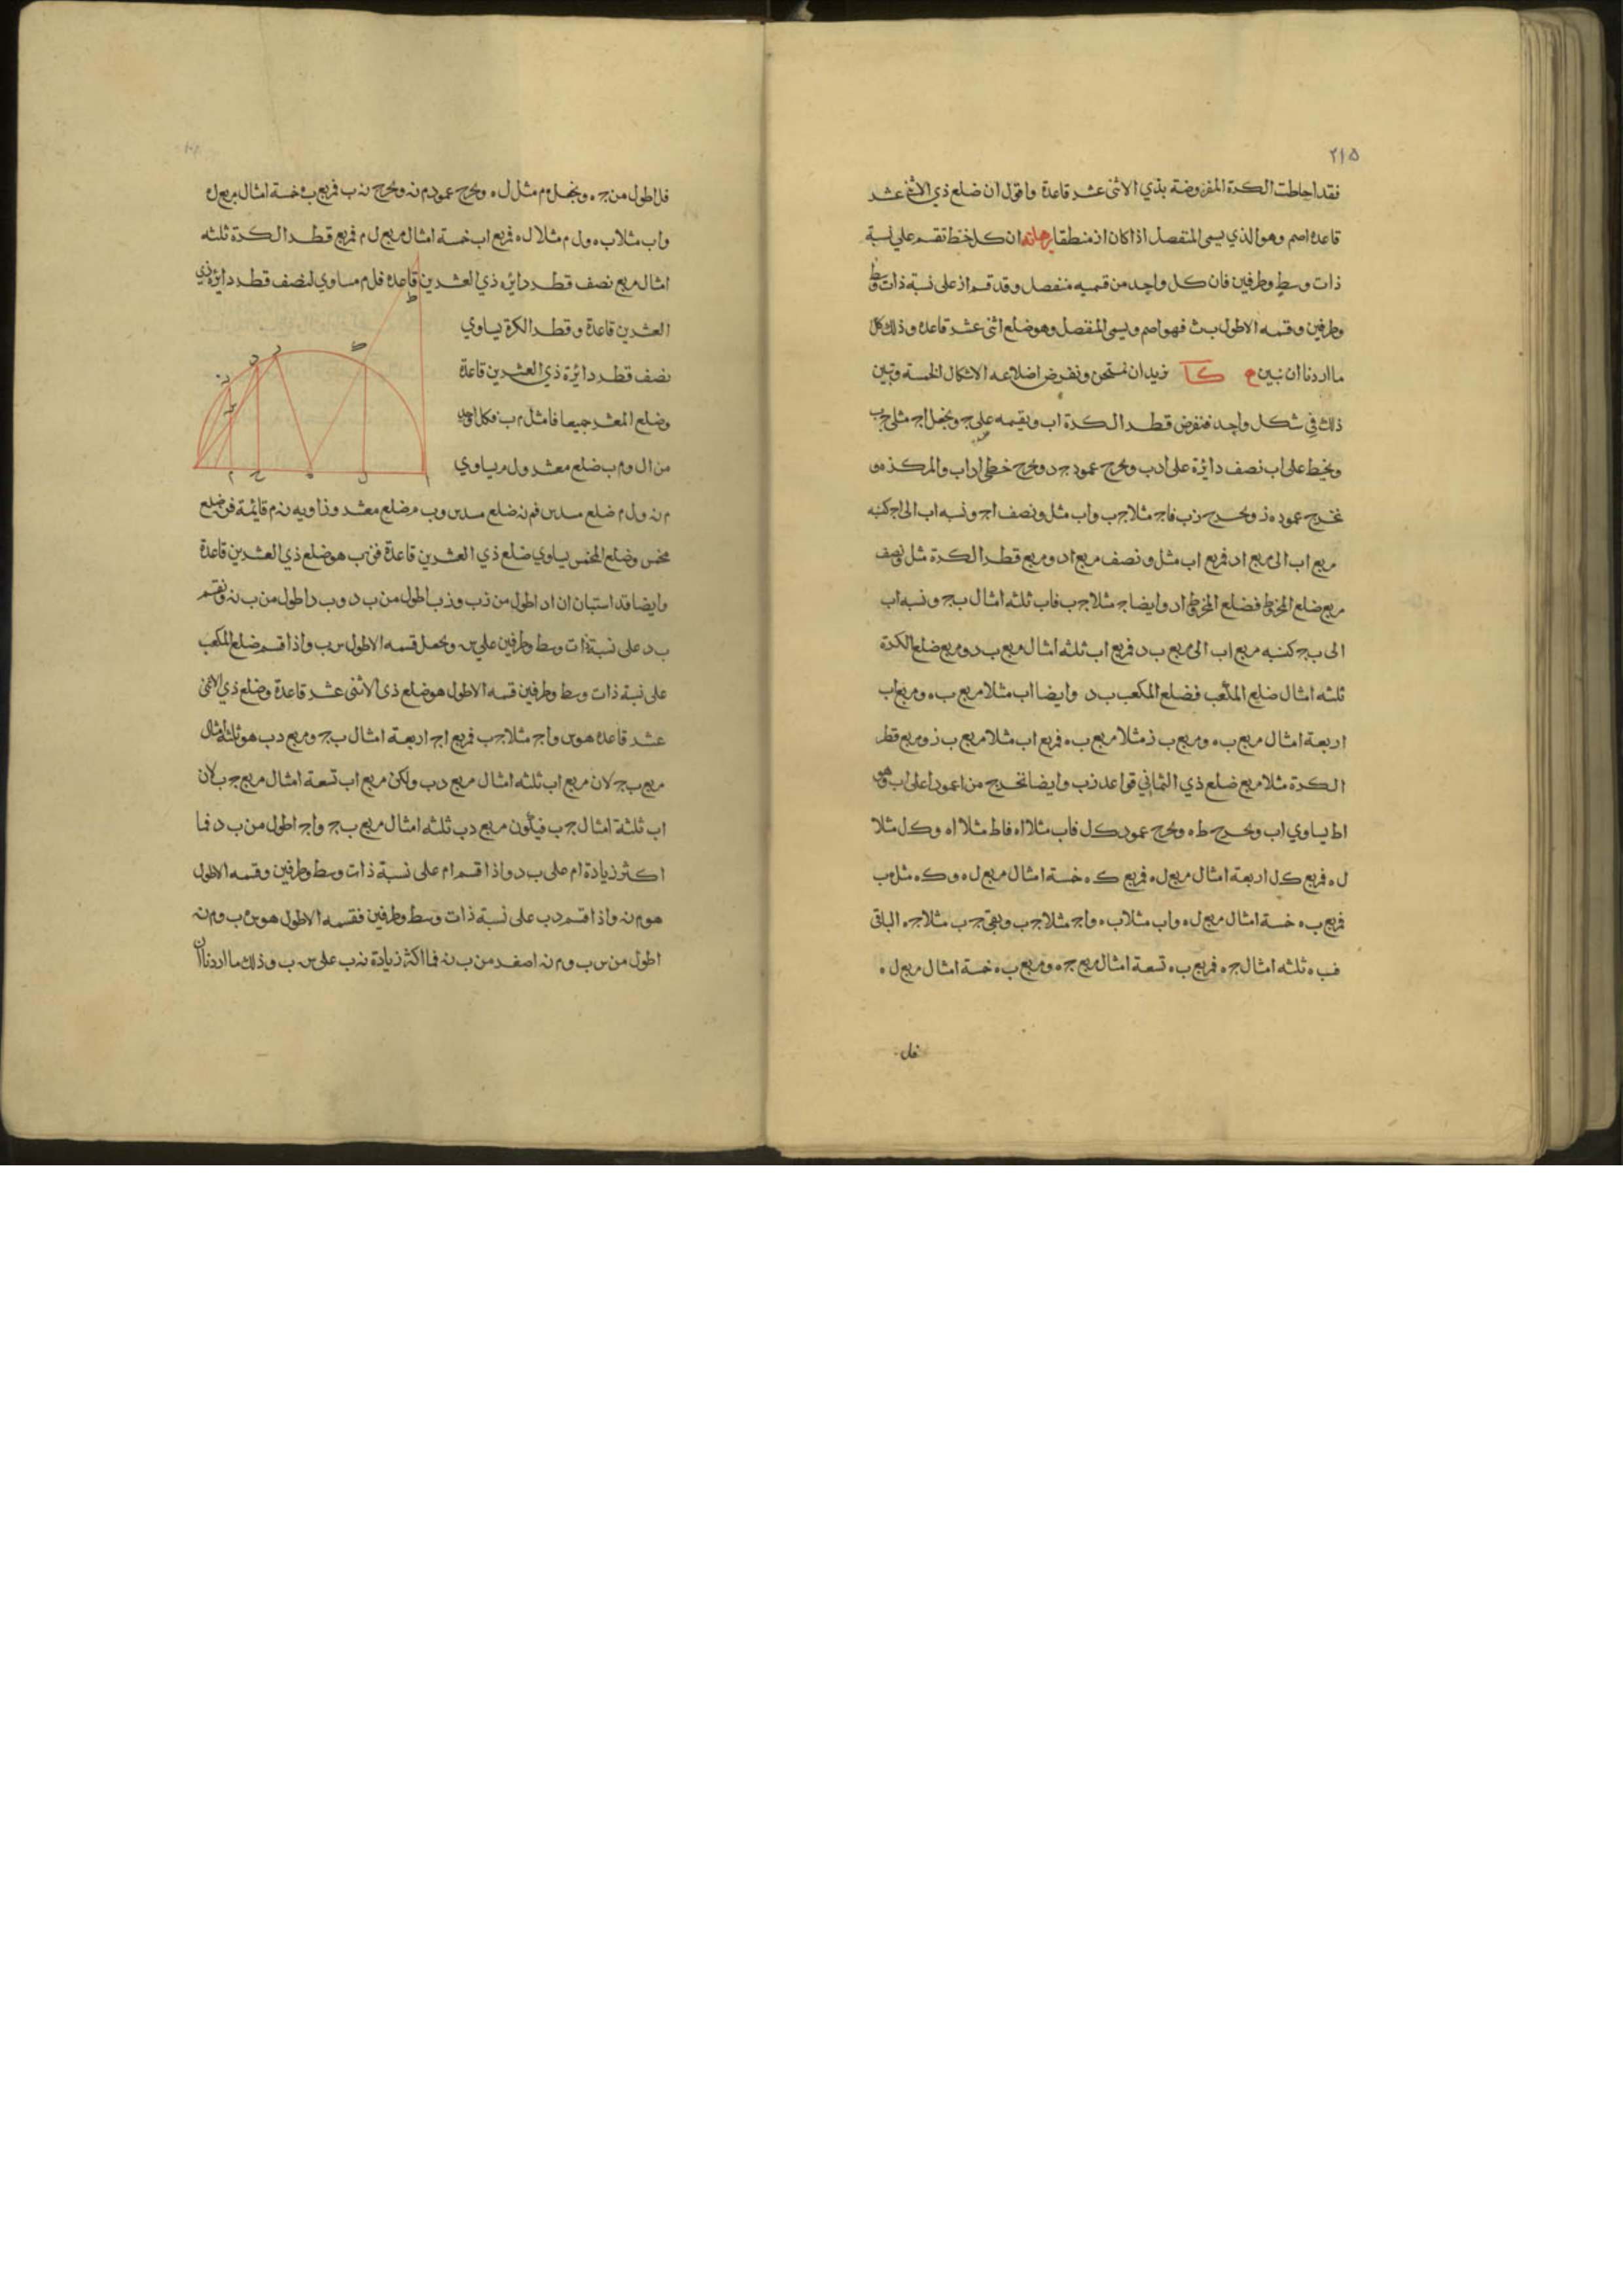 ٢١٥
فقد احاطت الكرة المفروضة بذي الاثنى عشر قاعدة واقول ان ضلع ذي الاثنى عشر
قاعدة اصم وهو الذي يسمى المنفصل اذا كان از منطقا برهانه ان كل خط تقسم على نسبة
ذات وسط وطرفين فان كل واحد من قسميه منفصل وقد قسم از على نسبة ذات وسط
وطرفين وقسمه الاطول فهو اصم ويسمى المنفصل وهو ضلع اثنى عشر قاعدة وذلك كل
ما اردنا ان نبين كا نريد ان نمتحن ونفرض اضلاعه الاشكال الخمسة ونبين
ذلك في شكل واحد فنفرض قطر الكرة اب ونقيمه على ج ونجعل اج مثلي جب
ونخط على اب نصف دائرة على ادب ونخرج عمود جد ونخرج خطي اد اب والمركز ه و
نخرج عمود ه ز ونخرج زب فاج مثلا جب واب مثل ونصف اج ونسبه اب الى اج كنسبه
مربع اب الى مربع اد فمربع اب مثل ونصف مربع اد ومربع قطر الكرة مثل ونصف
مربع ضلع المخروط فضلع المخروط اد وايضا اج مثلا جب فاب ثلثه امثال بج ونسبه اب
الى بج كنسبه مربع اب الى مربع بد فمربع اب ثلثه امثال مربع بد ومربع ضلع الكرة
ثلثه امثال ضلع المكعب فضلع المكعب بد وايضا اب مثلا مربع به ومربع اب
اربعة امثال مربع به ومربع ب ز مثلا مربع به فمربع اب مثلا مربع ب ز ومربع قطر
الكرة مثلا مربع ضلع ذي الثماني قواعد زب وايضا نخرج من ا عمودا على اب وهو
اط يساوي اب ونخرج طه ونخرج عمود كل فاب مثلا اه فاط مثلا اه وكل مثلا
له فمربع كل اربعة امثال مربع له فمربع كه خمسة امثال مربع له وكه مثل هب
فمربع به خمسة امثال مربع له واب مثلا به واج مثلا جب وبقي جب مثلا جه الباقي
فبه ثلثه امثال جه فمربع به تسعة امثال مربع جه ومربع به خمسة امثال مربع له
فل
فل اطول من جه ونجعل هم مثل له ونخرج عمود م نه ونخرج نه ب فمربع به خمسة امثال مربع له
واب مثلا به ول م مثلا له فمربع اب خمسة امثال مربع ل م فمربع قطر الكرة ثلثه
امثال مربع نصف قطر دائره ذي العشرين قاعدة فلم مساوي لنصف قطر دائرة ذي
العشرين قاعدة وقطر الكرة يساوي
نصف قطر دائرة ذي العشرين قاعدة
وضلع المعشر جميعا فال مثل م ب فكل واحد
من ال وم ب ضلع معشر ول م يساوي
م نه ول م ضلع مسدس فم نه ضلع مسدس وب م ضلع معشر وزاويه نه م قايمة فن ب ضلع
مخمس وضلع المخمس يساوي ضلع ذي العشرين قاعدة فن ب هو ضلع ذي العشرين قاعدة
وايضا قد استبان ان اد اطول من زب وزب اطول من ب د وب د اطول من ب نه ونقسم
ب د على نسبة ذات وسط وطرفين على س ونجعل قسمه الاطول س ب واذا قسم ضلع المكعب
على نسبة ذات وسط وطرفين قسمه الاطول هو ضلع ذي الاثنى عشر قاعدة وضلع ذي الاثنى
عشر قاعدة هو س واج مثلا جب فمربع اج اربعة امثال بج ومربع دب هو ثلثة امثال
مربع بج لان مربع اب ثلثه امثال مربع دب ولكن مربع اب تسعة امثال مربع جب لان
اب ثلثة امثال جب فيكون مربع دب ثلثه امثال مربع بج واج اطول من ب د فما
اكثر زيادة ام على ب د واذا قسم ام على نسبة ذات وسط وطرفين وقسمه الاطول
هو م نه واذا قسم دب على نسبة ذات وسط وطرفين فقسمه الاطول هو س ب وم نه
اطول من س ب وم نه اصغر من ب نه فما اكثر زيادة نه ب على س ب وذلك ما اردنا ان